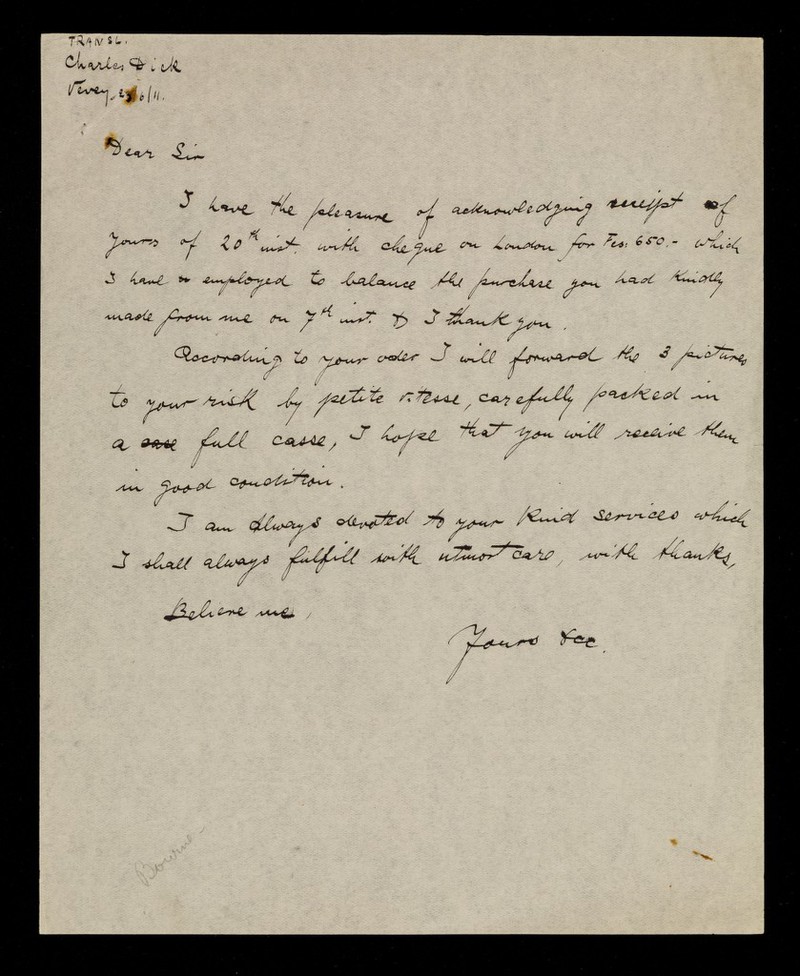 TRANSL.
Charles Dick
Vevey, 23/6/11.
Dear Sir
I have the pleasure of acknowledging receipt of
yours of 20th inst. with cheque on London for Fcs: 650.- which
I have employed to balance the purchase you had kindly
made from me on 7th inst. & I thank you.
According to your oder I will forward the 3 pictures
to your risk by petite vitesse, carefully packed in
a case full casse, I hope that you will receive them
in good condition.
I am always devoted to your kind services which
I shall always fulfill with utmost care, with thanks,
Believe me,
Yours &cc.
Bourne-